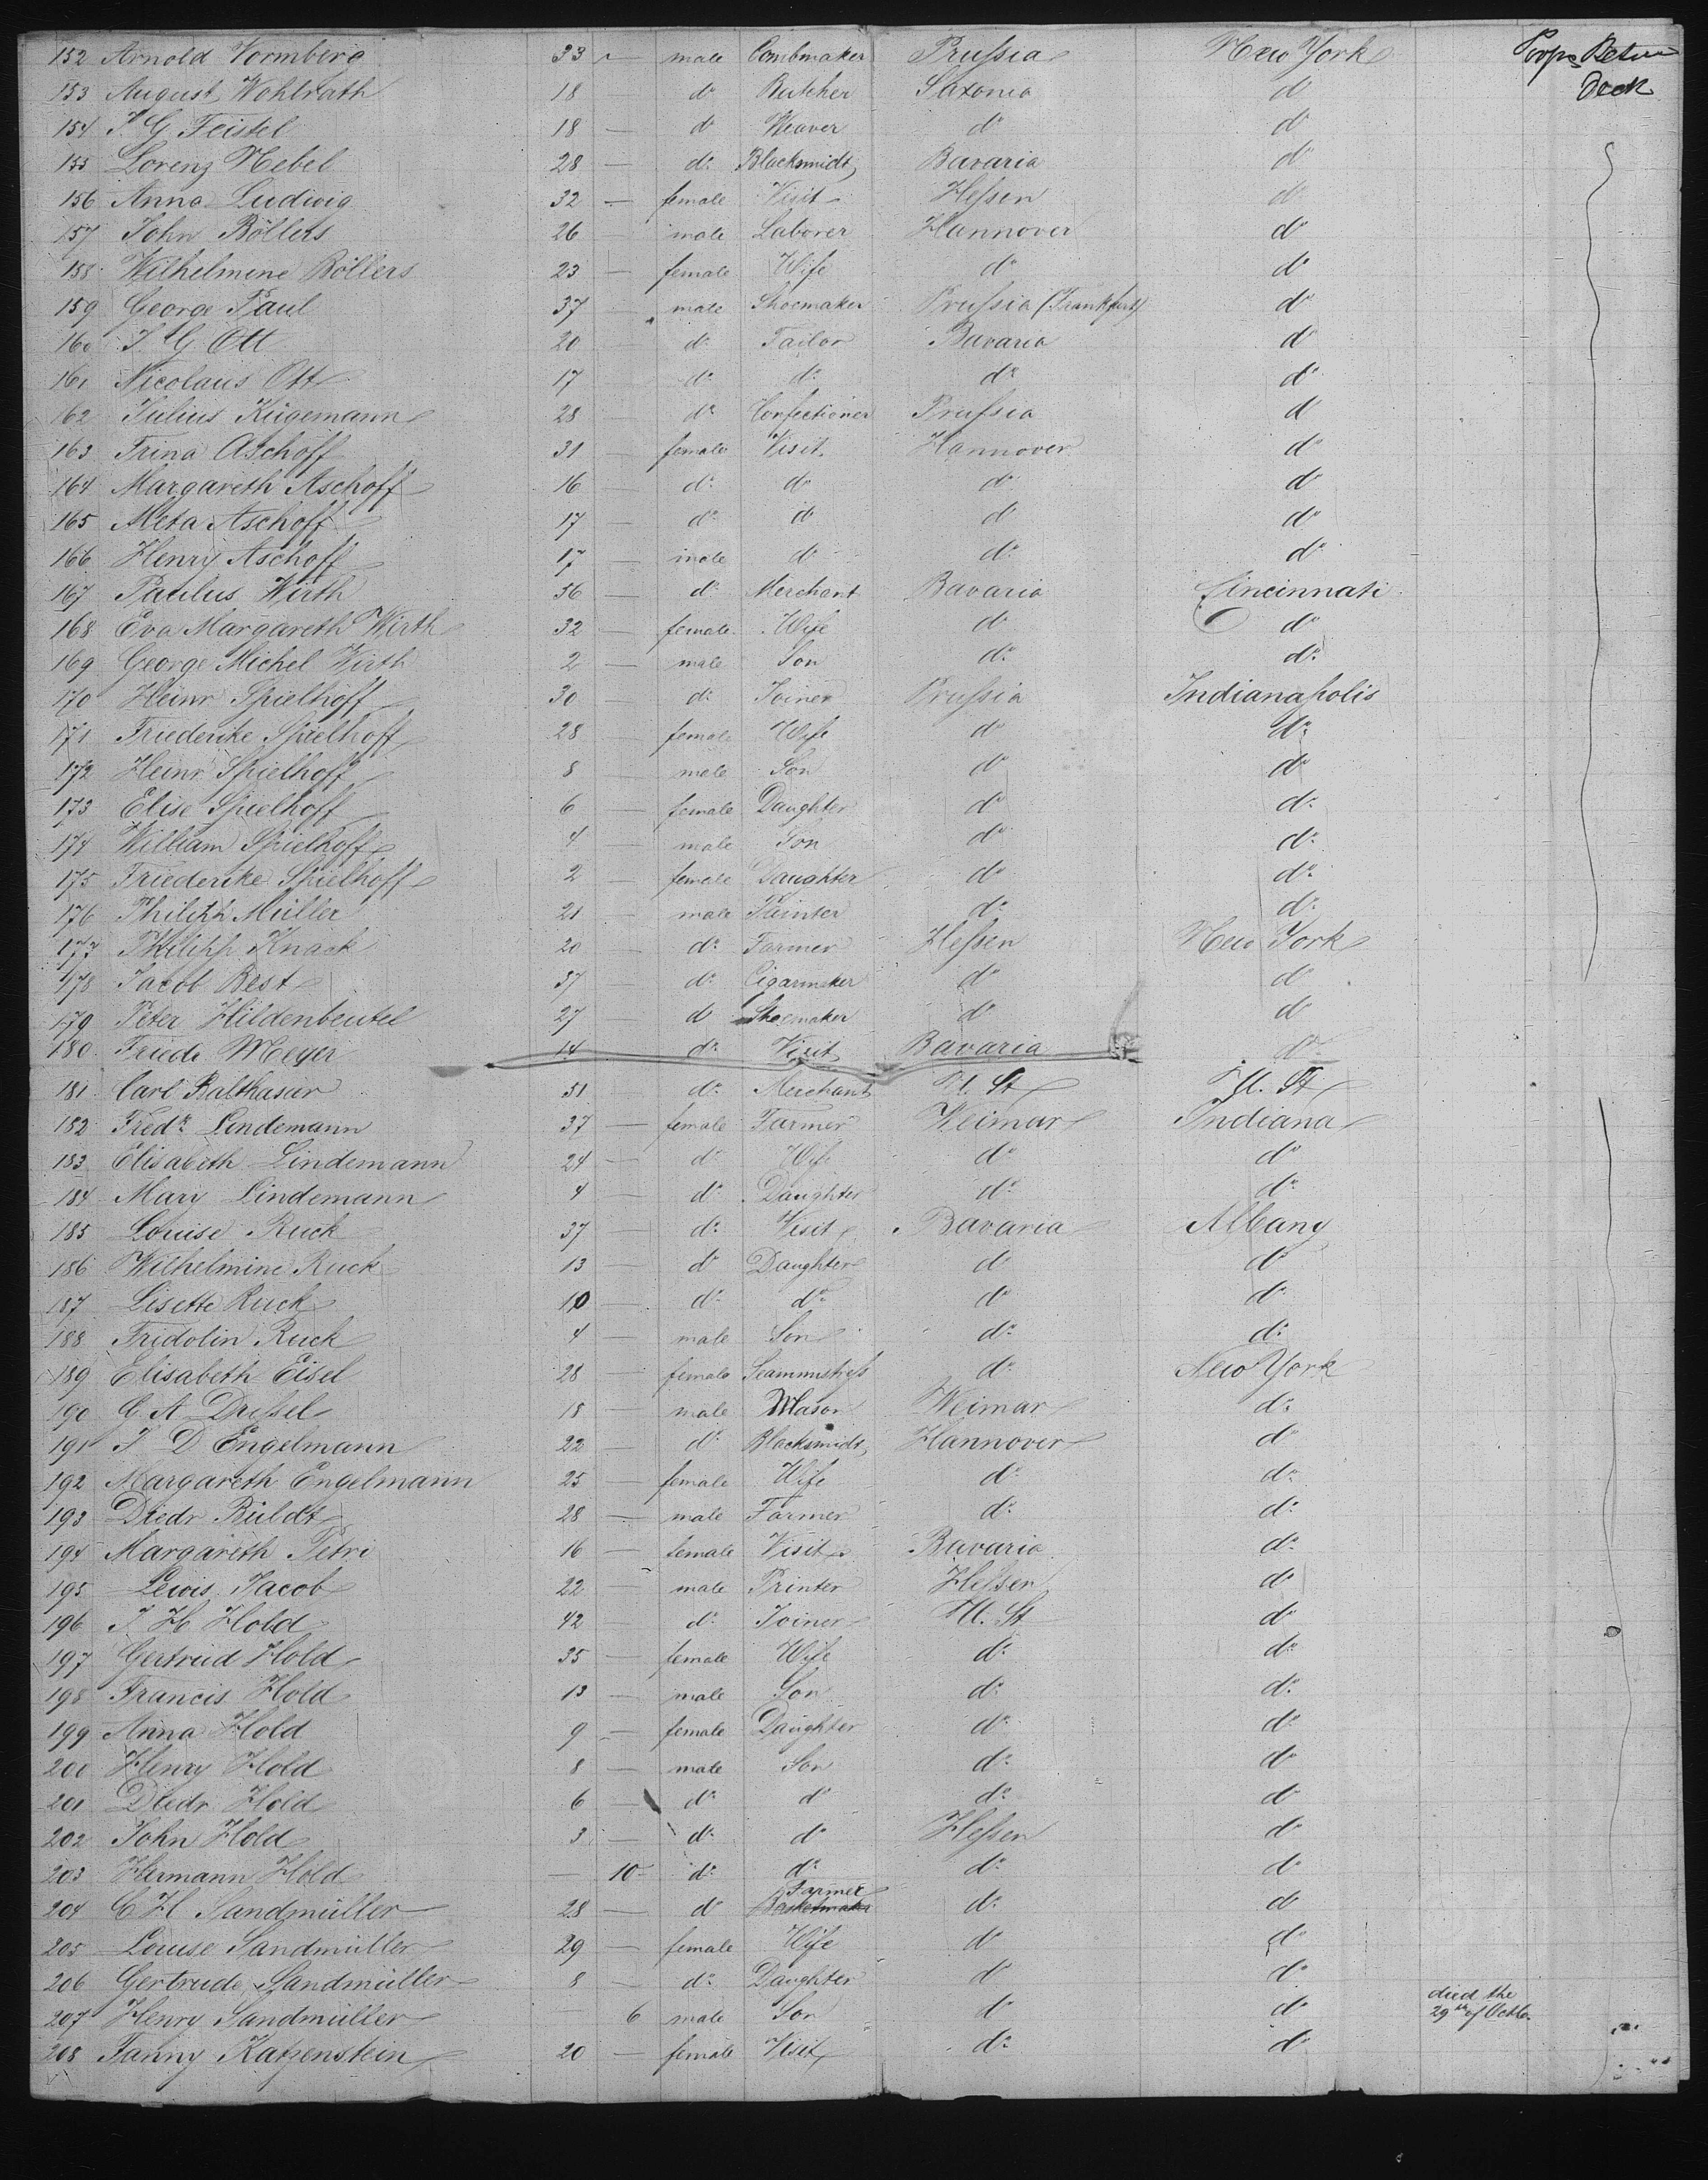 152 Arnold Vormberg 33 — male Combmaker Prussia New York Poop Betw
153 August Wohlrath 18 d° Butcher Saxonia d° Deck
154 J. G. Feistel 18 — d° Weaver d° d°
155 Lorenz Nebel 28 — d° Blacksmidt Bavaria d°
156 Anna Ludwig 32 — female Visit Hessen d°
157 John Böllers 26 — male Laborer Hannover d°
158 Wilhelmine Böllers 23 — female Wife d° d°
159 George Paul 37 — male Shoemaker Prussia (Frankfurt) d°
160 J. G. Ott 20 — d° Tailor Bavaria d°
161 Nicolaus Ott 17 d° d° d° d°
162 Julius Kügemann 28 — d° Confectioner Prussia d°
163 Trina Aschoff 31 — female Visit Hannover d°
164 Margareth Aschoff 16 — d° d° d° d°
165 Meta Aschoff 17 — d° d° d° d°
166 Henry Aschoff 17 — male d° d° d°
167 Paulus Wirth 56 — d° Merchant Bavaria Cincinnati
168 Eva Margareth Wirth 32 — female Wife d° d°
169 George Michel Wirth 2 — male Son d° d°
170 Heinr Spielhoff 30 — d° Joiner Prussia Indianapolis
171 Friederike Spielhoff 28 — female Wife d° d°
172 Heinr Spielhoff 8 — male Son d° d°
173 Elise Spielhoff 6 — female Daughter d° d°
174 William Spielhoff 4 — male Son d° d°
175 Friederike Spielhoff 2 — female Daughter d° d°
176 Philipp Müller 21 — male Painter d° d°
177 Philipp Knack 20 — d° Farmer Hessen New York
178 Jacob Best 37 — d° Cigarmaker d° d°
179 Peter Hildenbeutel 27 — d° Shoemaker d° d°
180 Friedr Meyer 14 d° Visit Bavaria d°
181 Carl Balthasar 51 — d° Merchant U. St U. St
182 Fredr Lindemann 37 — female Farmer Weimar Indiana
183 Elisabeth Lindemann 24 — d° Wife d° d°
184 Mary Lindemann 4 — d° Daughter d° d°
185 Louise Ruck 37 — d° Visit Bavaria Albany
186 Wilhelmine Ruck 13 — d° Daughter d° d°
187 Lisette Ruck 10 — d° d° d° d°
188 Fridolin Ruck 4 — male Son d° d°
189 Elisabeth Eisel 28 — female Seammstress d° New York
190 C. A. Dressel 18 — male Mason Weimar d°
191 J. D Engelmann 22 — d° Blacksmidt Hannover d°
192 Margareth Engelmann 25 — female Wife d° d°
193 Diedr Büldt 28 — male Farmer d° d°
194 Margareth Petri 16 — female Visit Bavaria d°
195 Lewis Jacob 22 male Printer Hessen d°
196 J. H. Hold 42 — d° Joiner U. St d°
197 Gertrud Hold 35 — female Wife d° d°
198 Francis Hold 13 — male Son d° d°
199 Anna Hold 9 — female Daughter d° d°
200 Henry Hold 8 — male Son d° d°
201 Diedr Hold 6 — d° d° d° d°
202 John Hold 3 — d° d° Hessen d°
203 Hermann Hold — 10 d° d° d° d°
Farmer
204 C H Sandmüller 28 — d° Basketmaker d° d°
205 Louise Sandmüller 29 — female Wife d° d°
206 Gertrude Sandmüller 8 — d° Daughter d° d° died the
207 Henry Sandmüller — 6 male Son d° d° 29th of Octbr.
208 Fanny Katzenstein 20 — female Visit d° d°